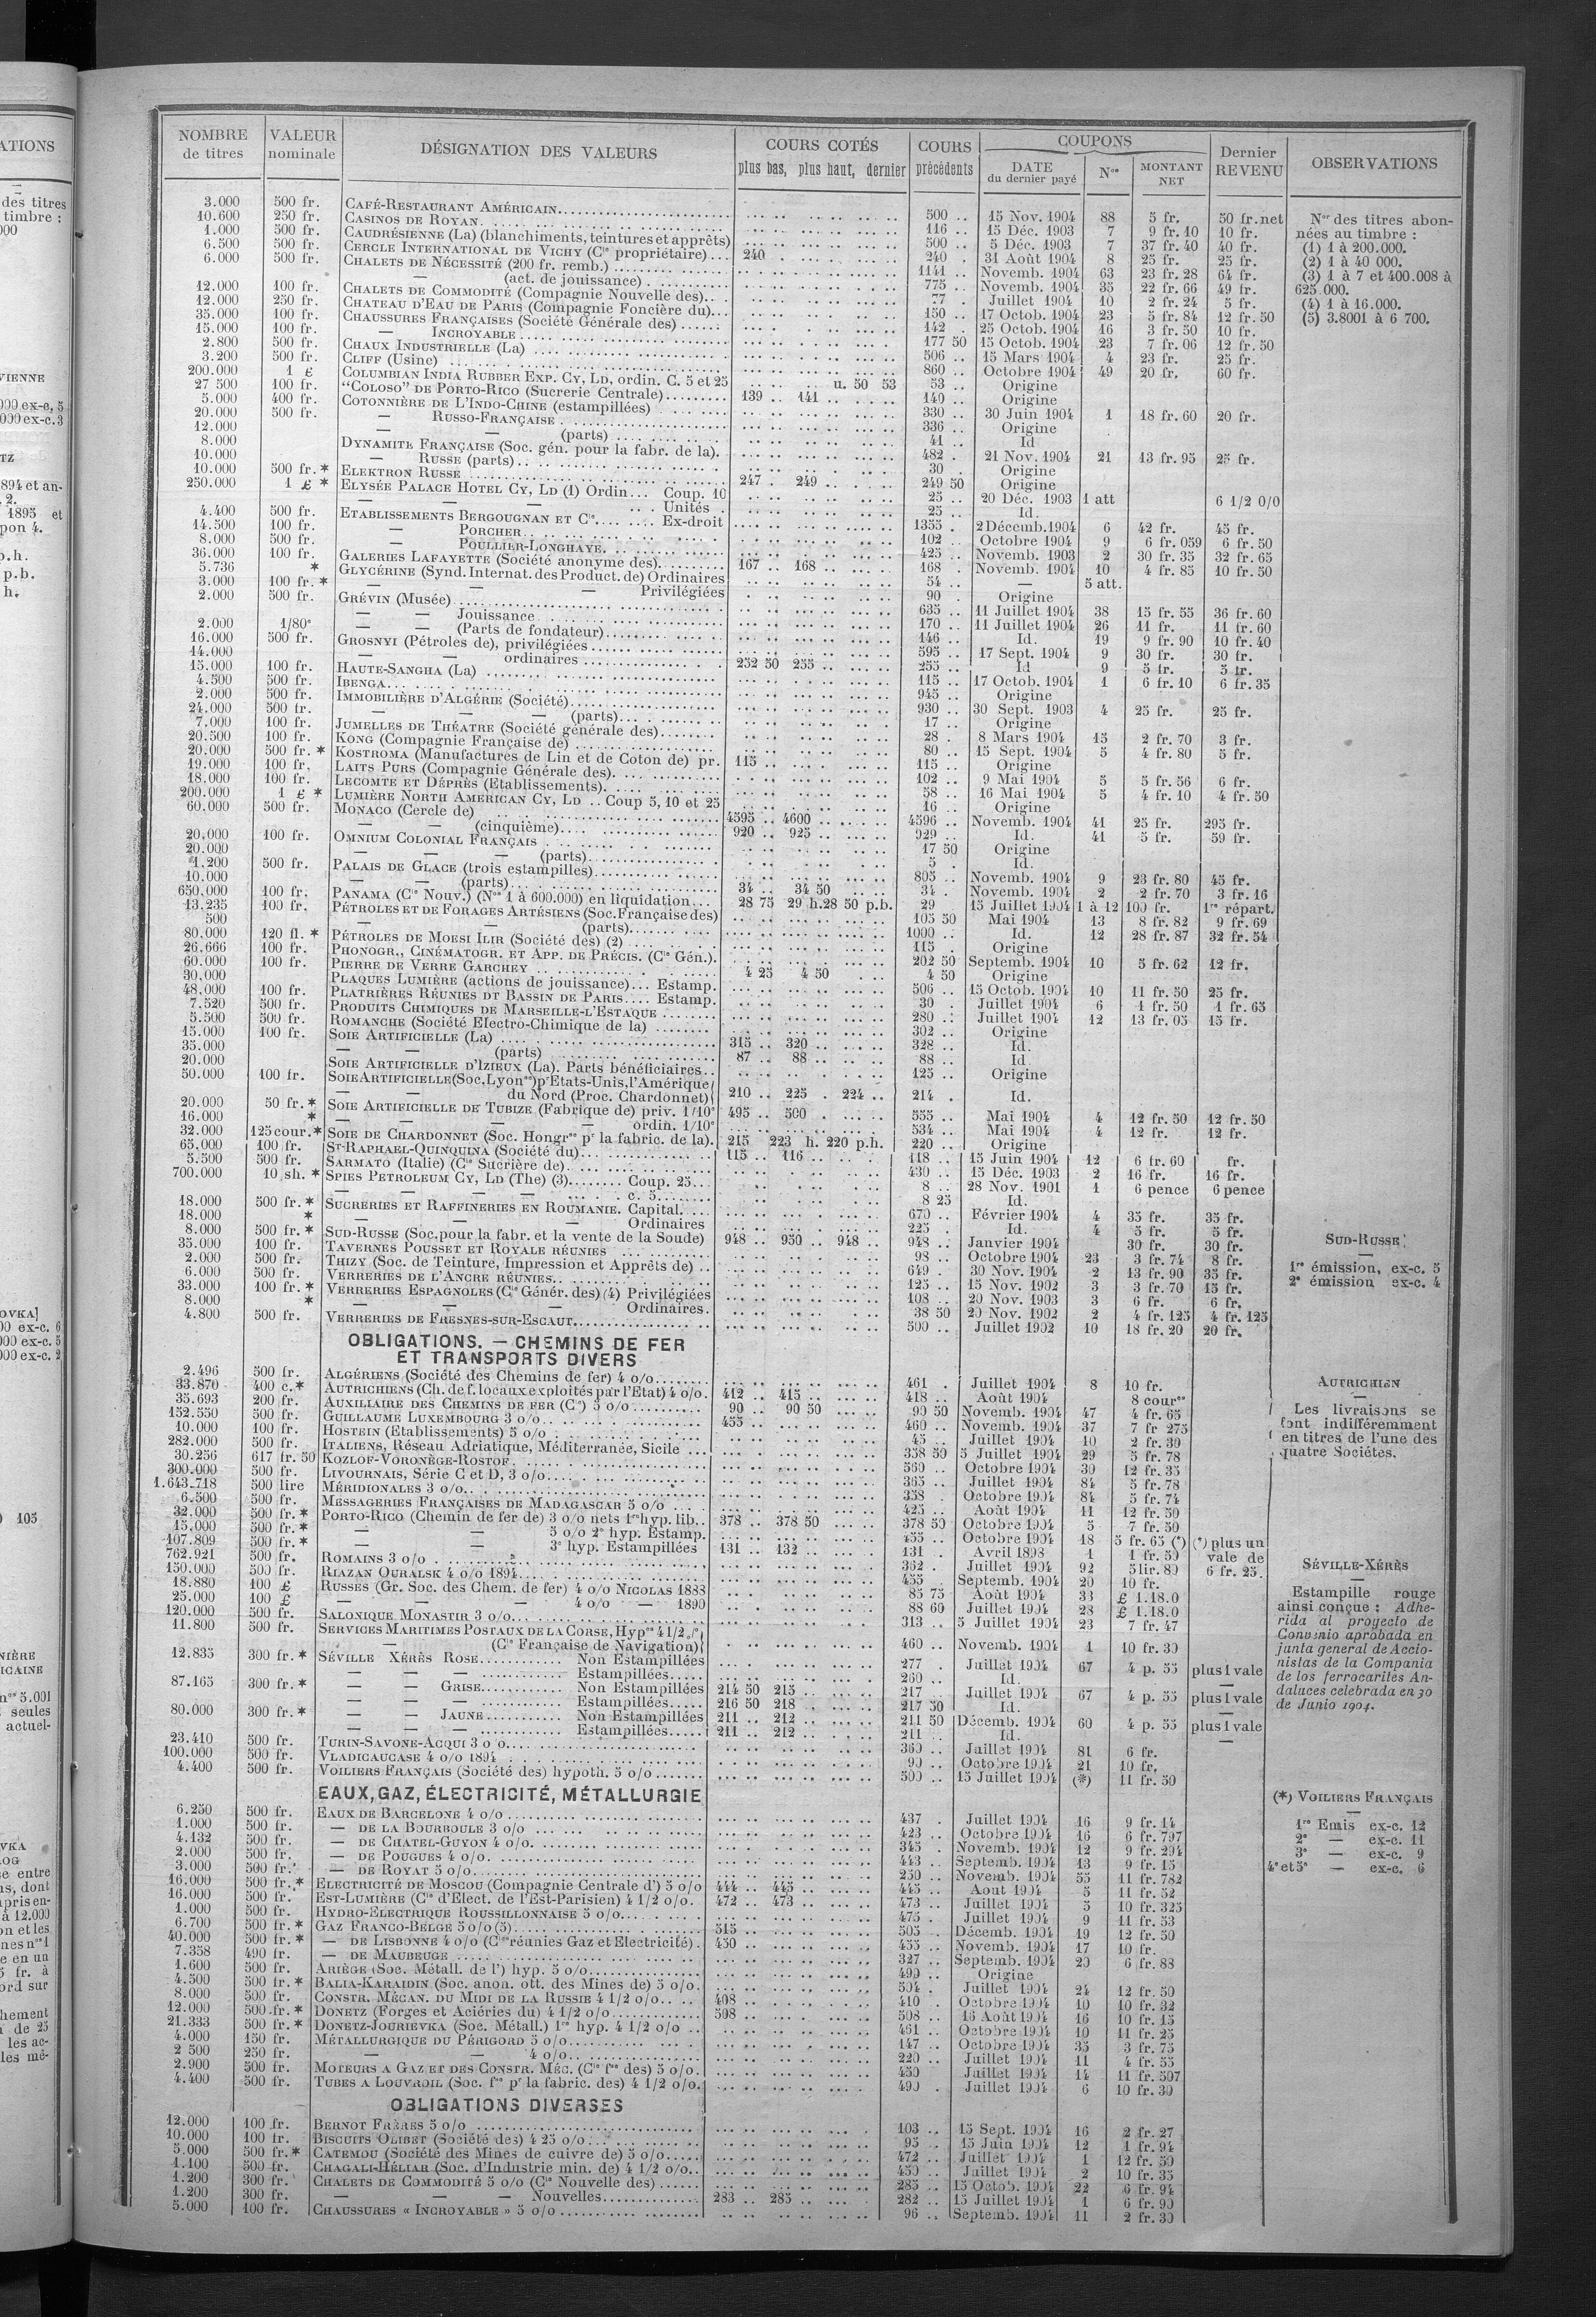 NOMBRE de titres | VALEUR nominale | DÉSIGNATION DES VALEURS | COURS COTÉS plus bas, plus haut, dernier | COURS précédents | COUPONS DATE du dernier payé | Nos | MONTANT NET | Dernier REVENU | OBSERVATIONS
3.000 500 fr. CAFÉ-RESTAURANT AMÉRICAIN 500 .. 15 Nov. 1904 88 5 fr. 50 fr. net
10.600 250 fr. CASINOS DE ROYAN 116 .. 15 Déc. 1903 7 9 fr. 10 10 fr.
1.000 500 fr. CAUDRÉSIENNE (La) (blanchiments, teintures et apprêts) 500 .. 5 Déc. 1903 7 37 fr. 40 40 fr.
6.500 500 fr. CERCLE INTERNATIONAL DE VICHY (Cie propriétaire) 240 240 . 31 Août 1904 8 25 fr. 25 fr.
6.000 500 fr. CHALETS DE NÉCESSITÉ (200 fr. remb.) 1141 .. Novemb. 1904 63 23 fr. 28 64 fr.
— (act. de jouissance) 775 .. Novemb. 1904 35 22 fr. 66 49 fr.
12.000 100 fr. CHALETS DE COMMODITÉ (Compagnie Nouvelle des) 77 . Juillet 1904 10 2 fr. 24 5 fr.
12.000 250 fr. CHATEAU D'EAU DE PARIS (Compagnie Foncière du) 150 .. 17 Octob. 1904 23 5 fr. 84 12 fr. 50
35.000 100 fr. CHAUSSURES FRANÇAISES (Société Générale des) 142 . 25 Octob. 1904 16 3 fr. 50 10 fr.
15.000 100 fr. — INCROYABLE 177 50 15 Octob. 1904 23 7 fr. 06 12 fr. 50
2.800 500 fr. CHAUX INDUSTRIELLE (La) 506 .. 15 Mars 1904 4 23 fr. 25 fr.
3.200 500 fr. CLIFF (Usine) 860 .. Octobre 1904 49 20 fr. 60 fr.
200.000 1 £ COLUMBIAN INDIA RUBBER EXP. CY, LD, ordin. C. 5 et 25 u. 50 53 53 .. Origine
27 500 100 fr. "COLOSO" DE PORTO-RICO (Sucrerie Centrale) 139 .. 141 140 .. Origine
5.000 400 fr. COTONNIÈRE DE L'INDO-CHINE (estampillées) 330 .. 30 Juin 1904 1 18 fr. 60 20 fr.
20.000 500 fr. — RUSSO-FRANÇAISE 336 .. Origine
12.000 — — (parts) 41 .. Id
8.000 DYNAMITE FRANÇAISE (Soc. gén. pour la fabr. de la). 482 . 21 Nov. 1904 21 13 fr. 95 25 fr.
10.000 — RUSSE (parts) 30 . Origine
10.000 500 fr. * ELEKTRON RUSSE 247 . 249 249 50 Origine
250.000 1 £ * ELYSÉE PALACE HOTEL CY, LD (1) Ordin... Coup. 10 25 .. 20 Déc. 1903 1 att 6 1/2 0/0
— — Unités 25 .. Id.
4.400 500 fr. ETABLISSEMENTS BERGOUGNAN ET Cie Ex-droit 1355 . 2 Décemb. 1904 6 42 fr. 45 fr.
14.500 100 fr. — PORCHER 102 .. Octobre 1904 9 6 fr. 059 6 fr. 50
8.000 500 fr. — POULLIER-LONGHAYE 425 .. Novemb. 1903 2 30 fr. 35 32 fr. 65
36.000 100 fr. GALERIES LAFAYETTE (Société anonyme des) 167 .. 168 168 . Novemb. 1904 10 4 fr. 85 10 fr. 50
5.736 * GLYCÉRINE (Synd. Internat. des Product. de) Ordinaires 54 .. — 5 att.
3.000 100 fr. * — — Privilégiées 90 . Origine
2.000 500 fr. GRÉVIN (Musée) 635 .. 11 Juillet 1904 38 15 fr. 55 36 fr. 60
— — Jouissance 170 .. 11 Juillet 1904 26 11 fr. 11 fr. 60
2.000 1/80e — — (Parts de fondateur) 146 .. Id. 19 9 fr. 90 10 fr. 40
16.000 500 fr. GROSNYI (Pétroles de), privilégiées 595 .. 17 Sept. 1904 9 30 fr. 30 fr.
14.000 — — ordinaires 252 50 255 255 .. Id 9 5 fr. 5 fr.
15.000 100 fr. HAUTE-SANGHA (La) 115 .. 17 Octob. 1904 1 6 fr. 10 6 fr. 35
4.500 500 fr. IBENGA 945 .. Origine
2.000 500 fr. IMMOBILIÈRE D'ALGÉRIE (Société) 930 .. 30 Sept. 1903 4 25 fr. 25 fr.
24.000 500 fr. — — (parts) 17 .. Origine
7.000 100 fr. JUMELLES DE THÉATRE (Société générale des) 28 . 8 Mars 1904 15 2 fr. 70 3 fr.
20.500 100 fr. KONG (Compagnie Française de) 80 .. 15 Sept. 1904 5 4 fr. 80 5 fr.
20.000 500 fr. * KOSTROMA (Manufactures de Lin et de Coton de) pr. 115 115 .. Origine
19.000 100 fr. LAITS PURS (Compagnie Générale des) 102 .. 9 Mai 1904 5 5 fr. 56 6 fr.
18.000 100 fr. LECOMTE ET DÉPRÈS (Etablissements) 58 .. 16 Mai 1904 5 4 fr. 10 4 fr. 50
200.000 1 £ * LUMIÈRE NORTH AMERICAN CY, LD .. Coup 5, 10 et 25 16 .. Origine
60.000 500 fr. MONACO (Cercle de) 4595 .. 4600 4596 .. Novemb. 1904 41 25 fr. 295 fr.
— — (cinquième) 920 .. 925 929 .. Id. 41 5 fr. 59 fr.
20.000 100 fr. OMNIUM COLONIAL FRANÇAIS 17 50 Origine
20.000 — — (parts) 5 . Id.
1.200 500 fr. PALAIS DE GLACE (trois estampilles) 805 .. Novemb. 1904 9 23 fr. 80 45 fr.
10.000 — — (parts) 34 .. 34 50 34 . Novemb. 1904 2 2 fr. 70 3 fr. 16
650.000 100 fr. PANAMA (Cie Nouv.) (Nos 1 à 600.000) en liquidation 28 75 29 h. 28 50 p.b. 29 15 Juillet 1904 1 à 12 100 fr. 1re répart.
13.235 100 fr. PÉTROLES ET DE FORAGES ARTÉSIENS (Soc. Française des) 105 50 Mai 1904 13 8 fr. 82 9 fr. 69
500 — — (parts) 1000 .. Id. 12 28 fr. 87 32 fr. 54
80.000 120 fl. * PÉTROLES DE MOESI ILIR (Société des) (2) 115 . Origine
26.666 100 fr. PHONOGR., CINÉMATOGR. ET APP. DE PRÉCIS. (Cie Gén.). 202 50 Septemb. 1904 10 5 fr. 62 12 fr.
60.000 100 fr. PIERRE DE VERRE GARCHEY 4 25 4 50 4 50 Origine
30.000 PLAQUES LUMIÈRE (actions de jouissance)... Estamp. 506 .. 15 Octob. 1904 10 11 fr. 50 25 fr.
48.000 100 fr. PLATRIÈRES RÉUNIES DT BASSIN DE PARIS.... Estamp. 30 . Juillet 1904 6 1 fr. 50 1 fr. 65
7.520 500 fr. PRODUITS CHIMIQUES DE MARSEILLE-L'ESTAQUE 280 .. Juillet 1904 12 13 fr. 05 15 fr.
5.500 500 fr. ROMANCHE (Société Electro-Chimique de la) 302 .. Origine
15.000 100 fr. SOIE ARTIFICIELLE (La) 315 .. 320 328 .. Id.
35.000 — — (parts) 87 .. 88 88 .. Id
20.000 SOIE ARTIFICIELLE D'IZIEUX (La). Parts bénéficiaires 125 .. Origine
50.000 100 fr. SOIE ARTIFICIELLE (Soc. Lyonse) pr Etats-Unis, l'Amérique
du Nord (Proc. Chardonnet) 210 .. 225 . 224 .. 214 . Id.
20.000 50 fr. * SOIE ARTIFICIELLE DE TUBIZE (Fabrique de) priv. 1/10e 495 .. 500 555 .. Mai 1904 4 12 fr. 50 12 fr. 50
16.000 * — — — ordin. 1/10e 534 .. Mai 1904 4 12 fr. 12 fr.
32.000 125 cour. * SOIE DE CHARDONNET (Soc. Hongrse pr la fabric. de la). 215 223 h. 220 p.h. 220 .. Origine
65.000 100 fr. ST-RAPHAEL-QUINQUINA (Société du) 115 .. 116 118 .. 15 Juin 1904 12 6 fr. 60 fr.
5.500 500 fr. SARMATO (Italie) (Cie Sucrière de) 430 .. 15 Déc. 1903 2 16 fr. 16 fr.
700.000 10 sh. * SPIES PETROLEUM CY, LD (The) (3) Coup. 25 8 .. 28 Nov. 1901 1 6 pence 6 pence
— — c. 5 8 25 Id.
18.000 500 fr. * SUCRERIES ET RAFFINERIES EN ROUMANIE. Capital. 670 .. Février 1904 4 35 fr. 35 fr.
18.000 * — — — Ordinaires 225 . Id. 4 5 fr. 5 fr.
8.000 500 fr. * SUD-RUSSE (Soc. pour la fabr. et la vente de la Soude) 948 .. 950 .. 948 .. 948 .. Janvier 1904 30 fr. 30 fr.
35.000 100 fr. TAVERNES POUSSET ET ROYALE RÉUNIES 98 .. Octobre 1904 23 3 fr. 74 8 fr.
2.000 500 fr. THIZY (Soc. de Teinture, Impression et Apprêts de) 649 . 30 Nov. 1904 2 13 fr. 90 35 fr.
6.000 500 fr. VERRERIES DE L'ANCRE RÉUNIES 125 .. 15 Nov. 1902 3 3 fr. 70 15 fr.
33.000 100 fr. * VERRERIES ESPAGNOLES (Cie Génér. des) (4) Privilégiées 108 .. 20 Nov. 1903 3 6 fr. 6 fr.
8.000 * — — Ordinaires. 38 50 20 Nov. 1902 2 4 fr. 125 4 fr. 125
4.800 500 fr. VERRERIES DE FRESNES-SUR-ESCAUT 500 .. Juillet 1902 10 18 fr. 20 20 fr.
OBLIGATIONS. — CHEMINS DE FER
ET TRANSPORTS DIVERS
2.496 500 fr. ALGÉRIENS (Société des Chemins de fer) 4 o/o 461 . Juillet 1904 8 10 fr.
33.870 400 c. * AUTRICHIENS (Ch. de f. locaux exploités par l'Etat) 4 o/o. 412 .. 415 418 .. Août 1904 8 coures
35.693 200 fr. AUXILIAIRE DES CHEMINS DE FER (Cie) 5 o/o 90 .. 90 50 90 50 Novemb. 1904 47 4 fr. 65
152.550 500 fr. GUILLAUME LUXEMBOURG 3 o/o 455 460 .. Novemb. 1904 37 7 fr 275
10.000 100 fr. HOSTEIN (Etablissements) 5 o/o 45 .. Juillet 1904 10 2 fr. 30
282.000 500 fr. ITALIENS, Réseau Adriatique, Méditerranée, Sicile 358 50 5 Juillet 1904 29 5 fr. 78
30.256 617 fr. 50 KOZLOF-VORONÈGE-ROSTOF 560 .. Octobre 1904 30 12 fr. 35
300.000 500 fr. LIVOURNAIS, Série C et D, 3 o/o 365 .. Juillet 1904 84 5 fr. 78
1.643.718 500 lire MÉRIDIONALES 3 o/o 358 . Octobre 1904 84 5 fr. 74
6.500 500 fr. MESSAGERIES FRANÇAISES DE MADAGASCAR 5 o/o 425 .. Août 1904 11 12 fr. 50
32.000 500 fr. * PORTO-RICO (Chemin de fer de) 3 o/o nets 1re hyp. lib. 378 .. 378 50 378 50 Octobre 1904 5 7 fr. 50
15.000 500 fr. * — — 5 o/o 2e hyp. Estamp. 455 .. Octobre 1904 18 5 fr. 65 (*) (*) plus un
107.809 500 fr. * — — 3e hyp. Estampillées 131 .. 132 131 . Avril 1898 1 1 fr. 50 vale de
762.921 500 fr. ROMAINS 3 o/o 362 . Juillet 1904 92 5 lir. 80 6 fr. 25.
150.000 500 fr. RIAZAN OURALSK 4 o/o 1894 455 .. Septemb. 1904 20 10 fr.
18.880 100 £ RUSSES (Gr. Soc. des Chem. de fer) 4 o/o NICOLAS 1888 85 75 Août 1904 33 £ 1.18.0
25.000 100 £ — — — 4 o/o — 1890 88 60 Juillet 1904 28 £ 1.18.0
120.000 500 fr. SALONIQUE MONASTIR 3 o/o 313 .. 5 Juillet 1904 23 7 fr. 47
11.800 500 fr. SERVICES MARITIMES POSTAUX DE LA CORSE, Hypes 4 1/2 o/o
— (Cie Française de Navigation) 460 .. Novemb. 1904 1 10 fr. 30
12.835 300 fr. * SÉVILLE XÉRÈS ROSE Non Estampillées 277 . Juillet 1904 67 4 p. 55 plus 1 vale
— — — Estampillées 260 .. Id. —
87.165 300 fr. * — — GRISE Non Estampillées 214 50 215 217 . Juillet 1904 67 4 p. 55 plus 1 vale
— — — Estampillées 216 50 218 217 50 Id. —
80.000 300 fr. * — — JAUNE Non Estampillées 211 .. 212 211 50 Décemb. 1904 60 4 p. 55 plus 1 vale
— — — Estampillées 211 .. 212 211 . Id. —
23.410 500 fr. TURIN-SAVONE-ACQUI 3 o/o 360 .. Juillet 1904 81 6 fr.
100.000 500 fr. VLADICAUCASE 4 o/o 1894 90 .. Octobre 1904 21 10 fr.
4.400 500 fr. VOILIERS FRANÇAIS (Société des) hypoth. 5 o/o 500 .. 15 Juillet 1904 (*) 11 fr. 50
EAUX, GAZ, ÉLECTRICITÉ, MÉTALLURGIE
6.250 500 fr. EAUX DE BARCELONE 4 o/o 437 . Juillet 1904 16 9 fr. 14
1.000 500 fr. — DE LA BOURBOULE 3 o/o 423 .. Octobre 1904 16 6 fr. 797
4.132 500 fr. — DE CHATEL-GUYON 4 o/o 345 . Novemb. 1904 12 9 fr. 294
2.000 500 fr. — DE POUGUES 4 o/o 443 .. Septemb. 1904 13 9 fr. 15
3.000 500 fr. — DE ROYAT 5 o/o 250 .. Novemb. 1904 55 11 fr. 782
16.000 500 fr. * ELECTRICITÉ DE MOSCOU (Compagnie Centrale d') 5 o/o 444 .. 445 445 .. Aout 1904 5 11 fr. 52
16.000 500 fr. EST-LUMIÈRE (Cie d'Elect. de l'Est-Parisien) 4 1/2 o/o. 472 .. 473 473 .. Juillet 1904 5 10 fr. 325
1.000 500 fr. HYDRO-ELECTRIQUE ROUSSILLONNAISE 5 o/o 475 . Juillet 1904 9 11 fr. 53
6.700 500 fr. * GAZ FRANCO-BELGE 5 o/o (5) 515 505 .. Décemb. 1904 19 12 fr. 50
40.000 500 fr. * — DE LISBONNE 4 o/o (Cies réunies Gaz et Electricité). 450 455 .. Novemb. 1904 17 10 fr.
7.358 490 fr. — DE MAUBEUGE 327 .. Septemb. 1904 20 6 fr. 88
1.600 500 fr. ARIÈGE (Soc. Métall. de l') hyp. 5 o/o 499 .. Origine
4.500 500 fr. * BALIA-KARAIDIN (Soc. anon. ott. des Mines de) 5 o/o. 504 . Juillet 1904 24 12 fr. 50
8.000 500 fr. CONSTR. MÉCAN. DU MIDI DE LA RUSSIE 4 1/2 o/o 408 410 . Octobre 1904 10 10 fr. 32
12.000 500 fr. * DONETZ (Forges et Aciéries du) 4 1/2 o/o 508 508 .. 16 Août 1904 16 10 fr. 15
21.333 500 fr. * DONETZ-JOURIEVKA (Soc. Métall.) 1re hyp. 4 1/2 o/o 461 .. Octobre 1904 10 11 fr. 25
4.000 150 fr. MÉTALLURGIQUE DU PÉRIGORD 5 o/o 147 . Octobre 1904 35 3 fr. 75
2 500 250 fr. — — 4 o/o 220 .. Juillet 1904 11 4 fr. 55
2.900 500 fr. MOTEURS A GAZ ET DES CONSTR. MÉC. (Cie fse des) 5 o/o. 450 Juillet 1904 14 11 fr. 507
4.400 500 fr. TUBES A LOUVROIL (Soc. fse pr la fabric. des) 4 1/2 o/o. 490 . Juillet 1904 6 10 fr. 30
OBLIGATIONS DIVERSES
12.000 100 fr. BERNOT FRÈRES 5 o/o 103 .. 15 Sept. 1904 16 2 fr. 27
10.000 100 fr. BISCUITS OLIBET (Société des) 4 25 o/o 95 .. 15 Juin 1904 12 1 fr. 94
5.000 500 fr. * CATEMOU (Société des Mines de cuivre de) 5 o/o 472 .. Juillet 1904 1 12 fr. 50
1.100 500 fr. CHAGALI-HÉLIAR (Soc. d'Industrie min. de) 4 1/2 o/o 450 .. Juillet 1904 2 10 fr. 35
1.200 300 fr. CHALETS DE COMMODITÉ 5 o/o (Cie Nouvelle des) 285 .. 15 Octob. 1904 22 6 fr. 94
1.200 300 fr. — — Nouvelles 283 .. 285 282 .. 15 Juillet 1904 1 6 fr. 90
5.000 100 fr. CHAUSSURES « INCROYABLE » 5 o/o 96 .. Septemb. 1904 11 2 fr. 30
Nos des titres abonnés au timbre :
(1) 1 à 200.000.
(2) 1 à 40 000.
(3) 1 à 7 et 400.008 à
625.000.
(4) 1 à 16.000.
(5) 3.8001 à 6 700.
SUD-RUSSE
1re émission, ex-c. 5
2e émission ex-c. 4
AUTRICHIEN
Les livraisons se
font indifféremment
en titres de l'une des
quatre Sociétes.
SÉVILLE-XÉRÈS
Estampille rouge
ainsi conçue : Adhe-
rida al proyecto de
Convenio aprobada en
junta general de Accio-
nistas de la Compania
de los ferrocariles An-
daluces celebrada en 30
de Junio 1904.
(*) VOILIERS FRANÇAIS
1re Emis ex-c. 12
2e — ex-c. 11
3e — ex-c. 9
4e et 5e — ex-c. 6